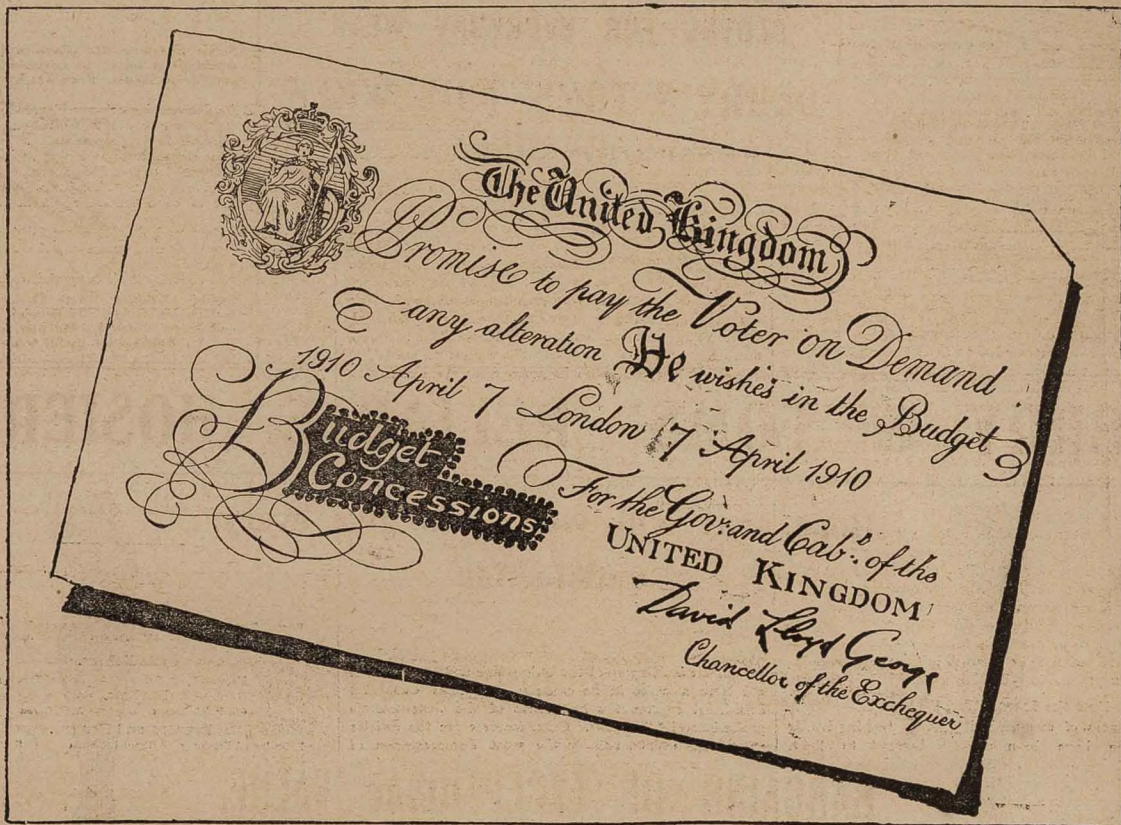 The United Kingdom
Promise to pay the Voter on Demand
any alteration He wishes in the Budget
1910 April 7 London 7 April 1910
Budget
Concessions
For the Gov: and Cab: of the
UNITED KINGDOM
David Lloyd George
Chancellor of the Exchequer